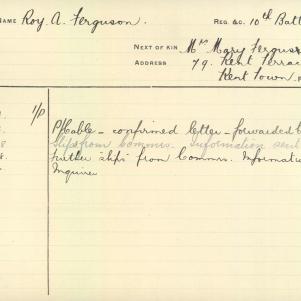 NAME Roy. A. Ferguson. REG &C. 10th Batt
NEXT OF KIN Mrs Mary Fergus
ADDRESS 79. Kent Terrac
Kent Town,
1/P
P/Cable - confirmed letter - forwarded b
slips from Commrs. Information sent
8
further slips from Commrs. Informatio
8.
Inquirer